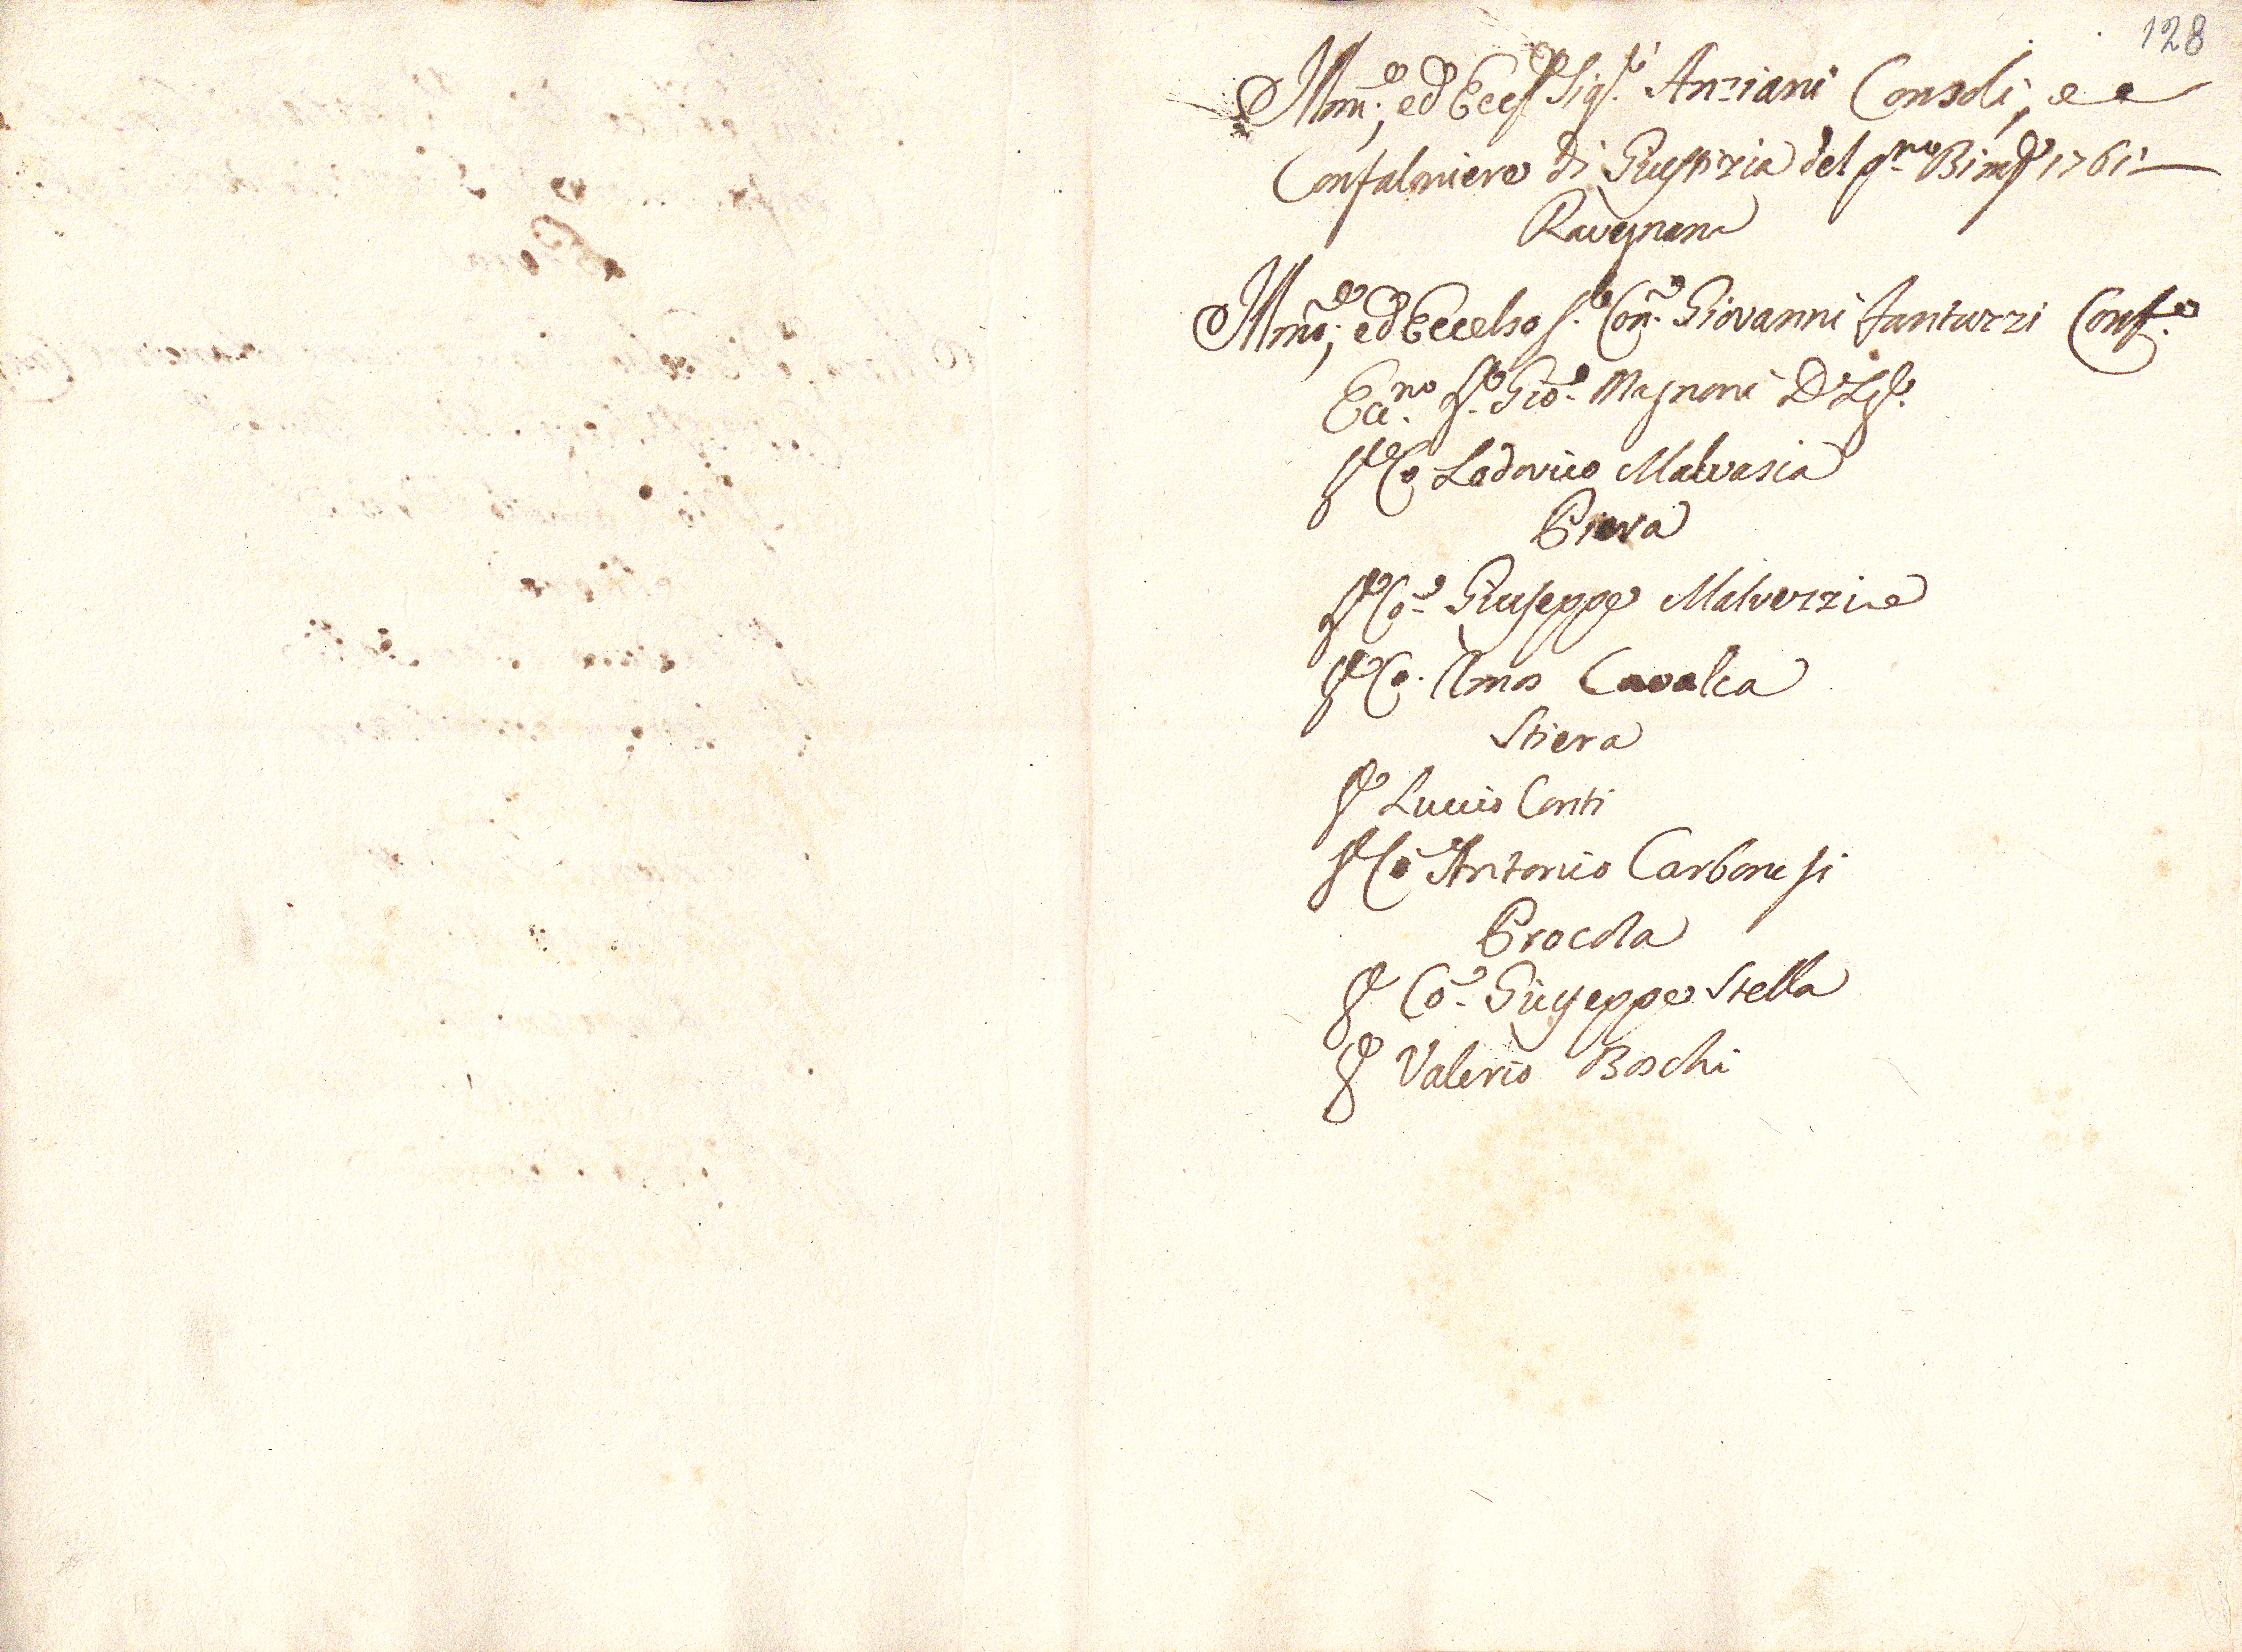 128
Illmi, ed Eccsi Sigri Anziani Consoli, e
Confalniere di Giustizia del pmo Bimre 1761
Ravegnana
Illmo, ed Eccelso Sr Con. Giovanni Fantuzzi Confre
Eccmo Sr Gio. Magnani D Lgr.
Sr Co Lodovico Malvasia
Piera
Sr Co. Giuseppe Malvezzi
Sr Co. Amos Cavalca
Stiera
Sr Luccio Conti
Sr Co Antonio Carbonesi
Procola
Sr Co. Giuseppe Stella
Sr Valerio Boschi